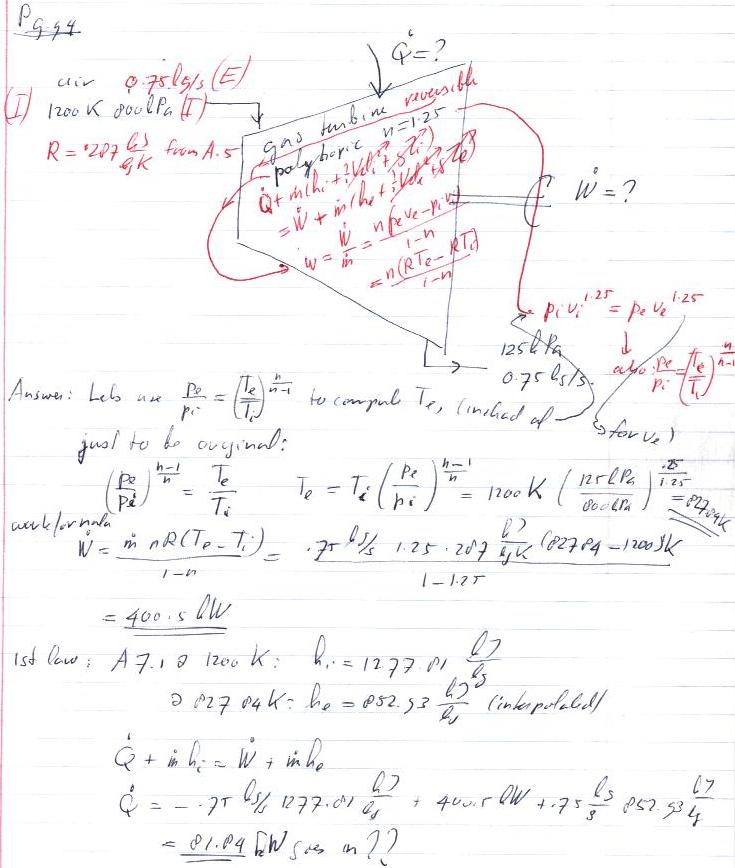 P 9.94
Q̇ = ?
air 0.75 kg/s (E)
(I) 1200K 800kPa (I)
R = .287 kJ/kgK from A.5
gas turbine reversible
polytropic n = 1.25
Q̇ + ṁ(hi + ½Veli² + gzi)
= Ẇ + ṁ(he + ½Vele² + gze)
w = Ẇ/ṁ = n(peve - pivi)/(1-n)
= n(RTe - RTi)/(1-n)
Ẇ = ?
pi vi^1.25 = pe ve^1.25
125kPa
0.75 kg/s
also: pe/pi = (Te/Ti)^(n/(n-1))
Answer: Lets use pe/pi = (Te/Ti)^(n/(n-1)) to compute Te, (instead of for ve)
just to be original:
(pe/pi)^((n-1)/n) = Te/Ti Te = Ti (pe/pi)^((n-1)/n) = 1200K (125kPa/800kPa)^(.25/1.25) = 827.84K
work formula
Ẇ = ṁ nR(Te - Ti)/(1-n) = .75 kg/s 1.25 .287 kJ/kgK (827.84 - 1200)K/(1 - 1.25)
= 400.5 kW
1st law: A7.1 @ 1200K: hi = 1277.81 kJ/kg
@ 827.84K: he = 852.93 kJ/kg (interpolated)
Q̇ + ṁhi = Ẇ + ṁhe
Q̇ = - .75 kg/s 1277.81 kJ/kg + 400.5 kW + .75 kg/s 852.93 kJ/kg
= 81.84 kW goes in ??